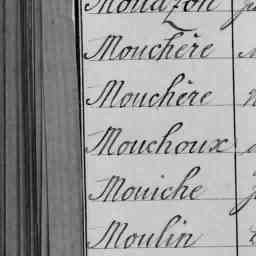 Mouchère
Mouchère
Mouchoux
Mouiche
Moulin